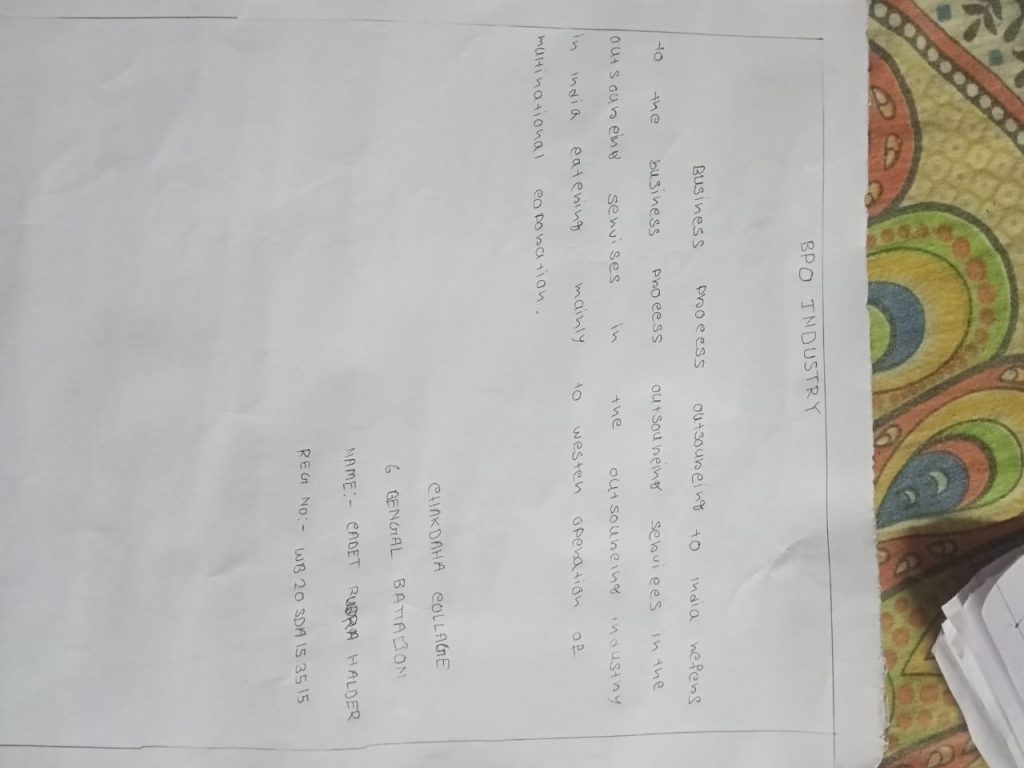 BPO INDUSTRY
Business process outsourceing to india refers
to the business process outsourcing services in the
outsourceing servises in the outsourceing industry
in india catering mainly to westen operation of
multinational coporation.
CHAKDAHA COLLAGE
6 BENGAL BATTALION
NAME:- CADET RUDRA HALDER
REG NO:- WB20SDA153515